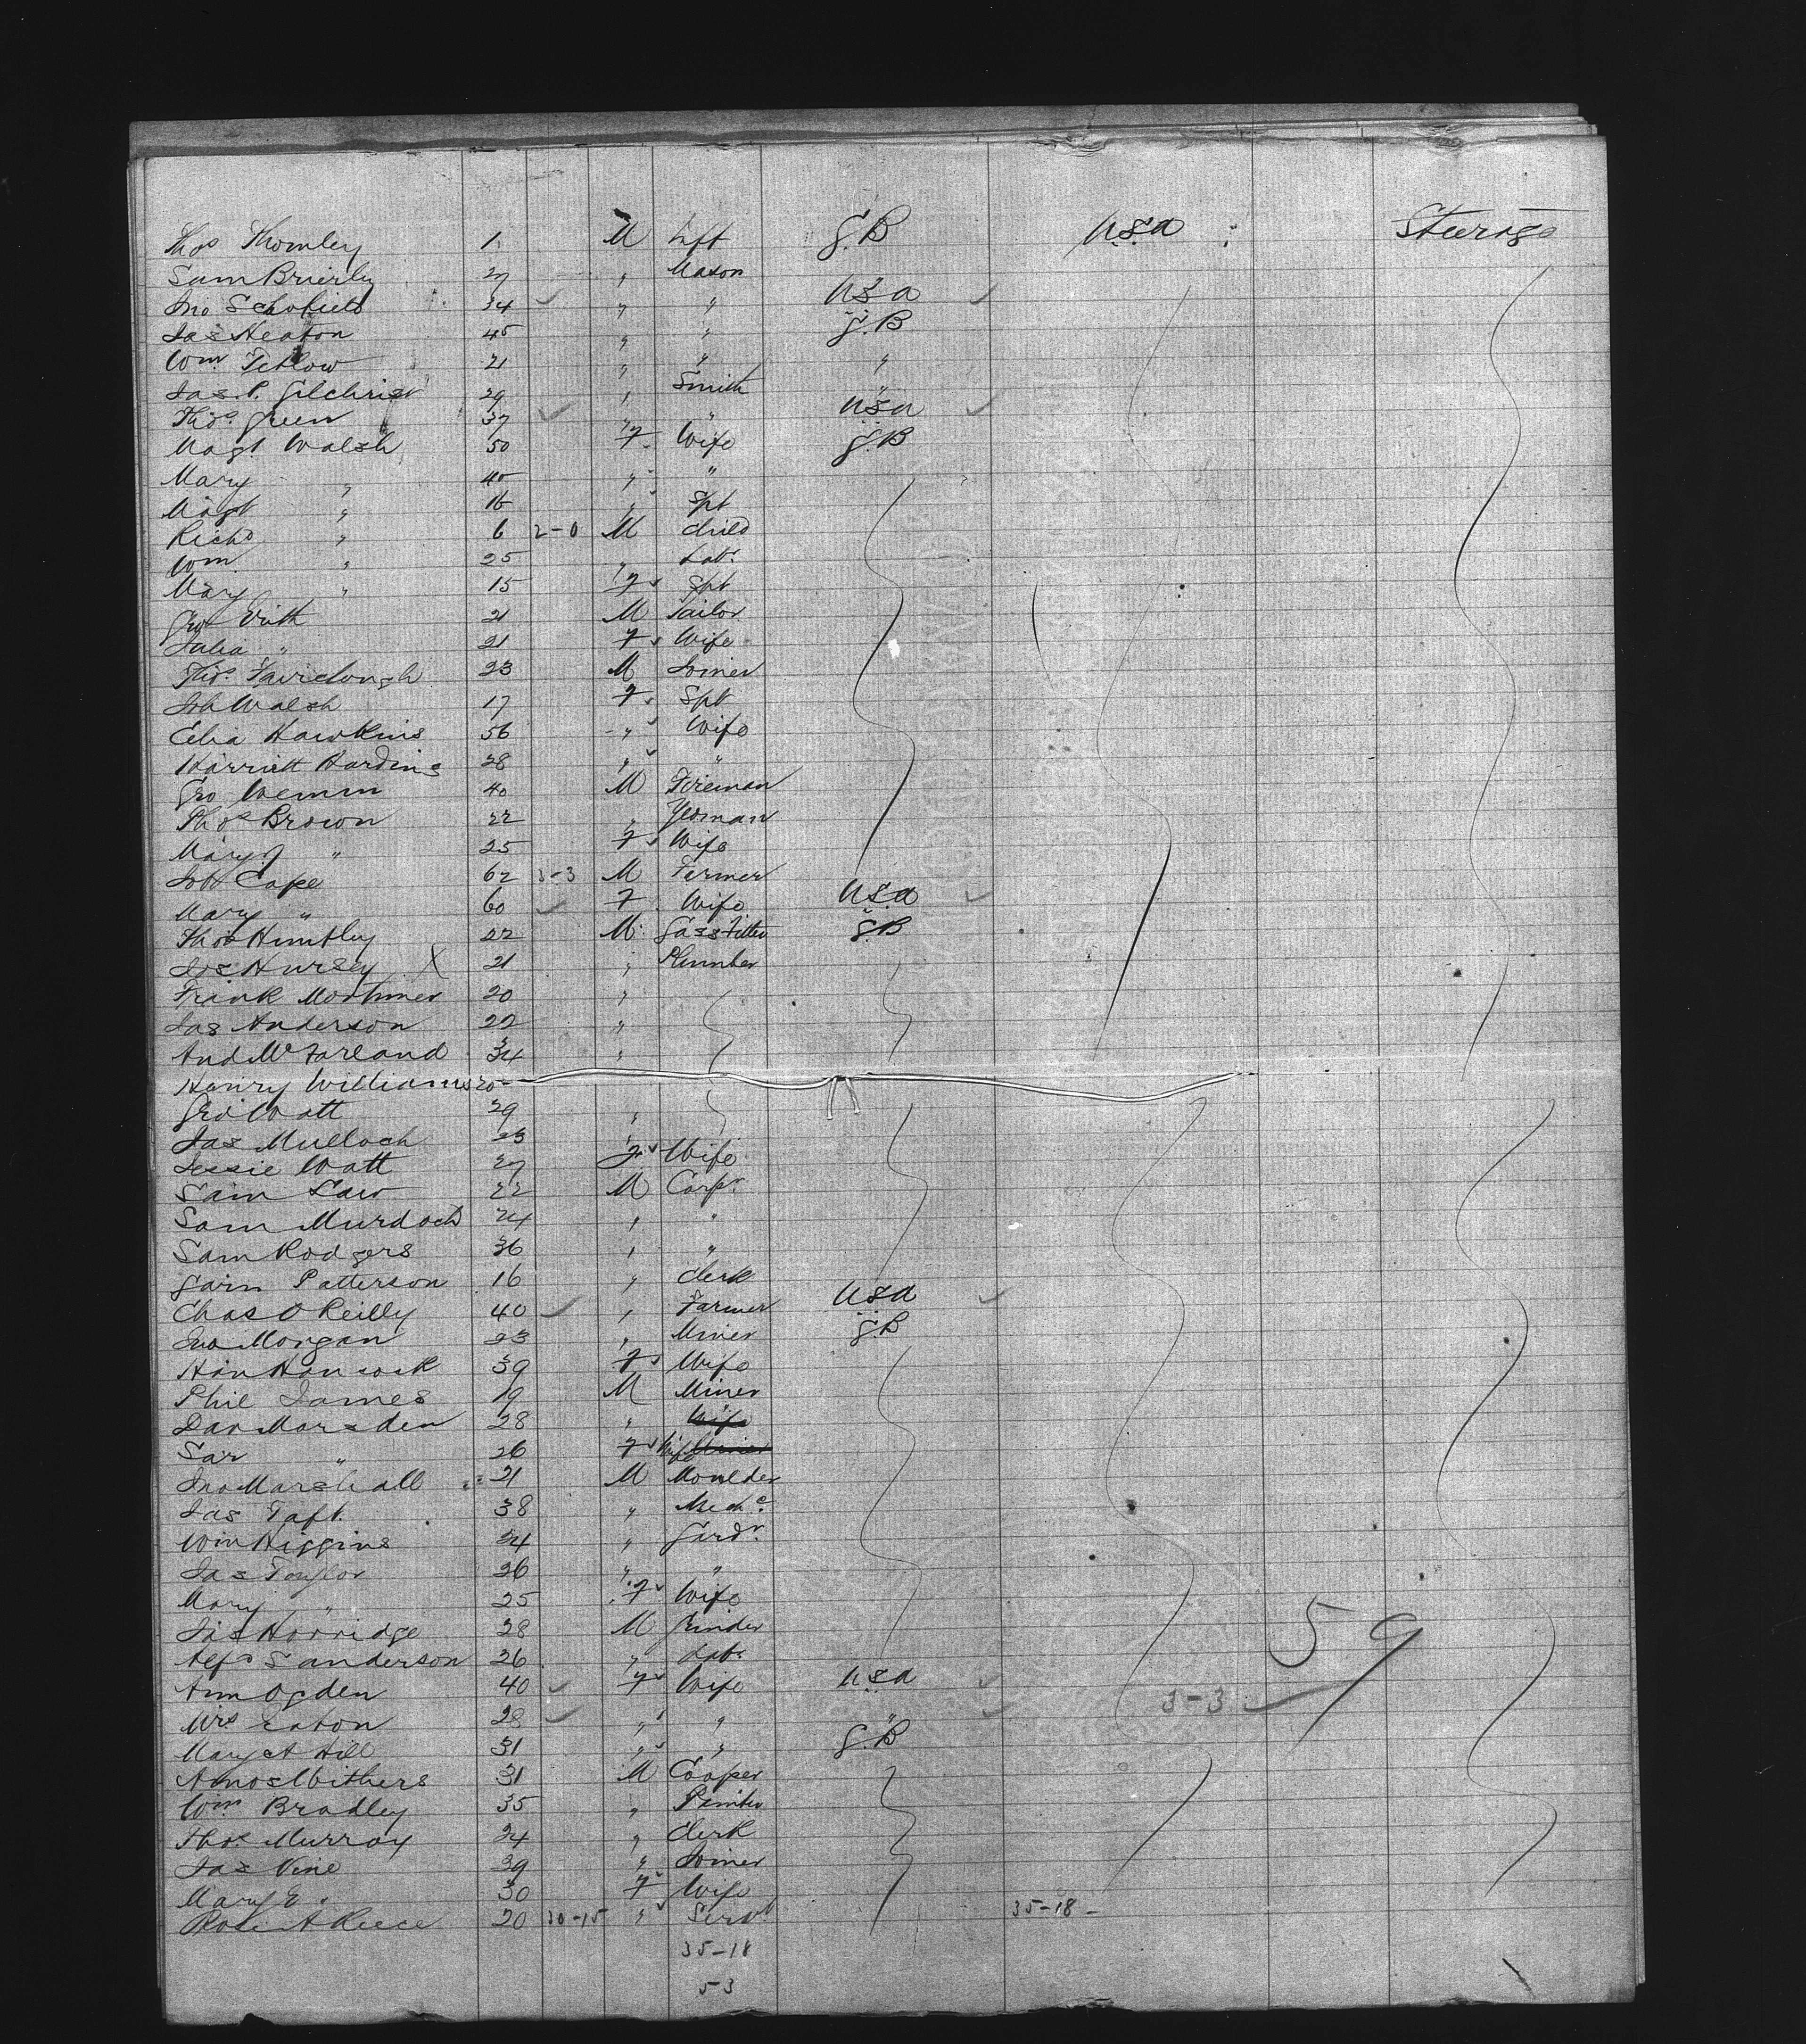 Thos Thornley 1 M Inft G.B U.S.A Steerage
Sam Brierly 27 " Mason
Jno Schofield 34 " " U.S.A
Jas Heaton 45 " " G.B
Wm Tetlow 21 " " "
Jas. P. Gilchrist 29 " Smith "
Thos Green 37 " " U.S.A
Magt Walsh 50 F Wife G.B
Mary " 40 " "
Magt " 16 " Spt
Richd " 6 2-0 M child
Wm " 25 " Labr
Mary " 15 F Spt
Geo 21 M Tailor
" 21 F Wife
Thos Fairclough 23 M Joiner
Walsh 17 F Spt
Hawkins 56 " Wife
Harriett Harding 28 " "
Geo 40 M Fireman
Thos Brown 22 " Yeoman
Mary J " 25 F Wife
Cape 62 3-3 M Farmer
Mary " 60 F Wife U.S.A
Thos Huntley 22 M Gassfitter G.B
Jos Hursey X 21 " Plumber
Frank Mortimer 20 "
Jas Anderson 22 "
And McFarland 34 "
Henry Williams 20
Geo Watt 29 "
Jas Mulloch 23 "
Jessie Watt 27 F Wife
Sam Law 22 M Carpr
Sam Murdoch 24 " "
Sam Rodgers 36 " "
Sam Patterson 16 " clerk
Chas O Reilly 40 " Farmer U.S.A
Jno Morgan 23 " Miner G.B
Han Hancock 39 F Wife
Phil James 19 M Miner
Dan Marsden 28 " Wife
Sar " 26 F Wife Miner
Jno Marshall 21 M Moulder
Jas Taft 38 " Mechc
Wm Higgins 24 " Gardr
Jas Taylor 26 " "
Mary " 25 F Wife
Jas Horridge 28 M Grinder 59
Alfd Sanderson 26 " Labr
Ann Ogden 40 F Wife U.S.A 3-3
Mrs Eaton 28 " " "
Mary A Hill 31 " " G.B
Amos Withers 31 M Cooper
Wm Bradley 35 " Painter
Thos Murray 24 " clerk
Jas Vine 39 " Joiner
Mary E " 30 F Wife
Rose A Reece 20 30-15 " Servt 35-18
35-18
53